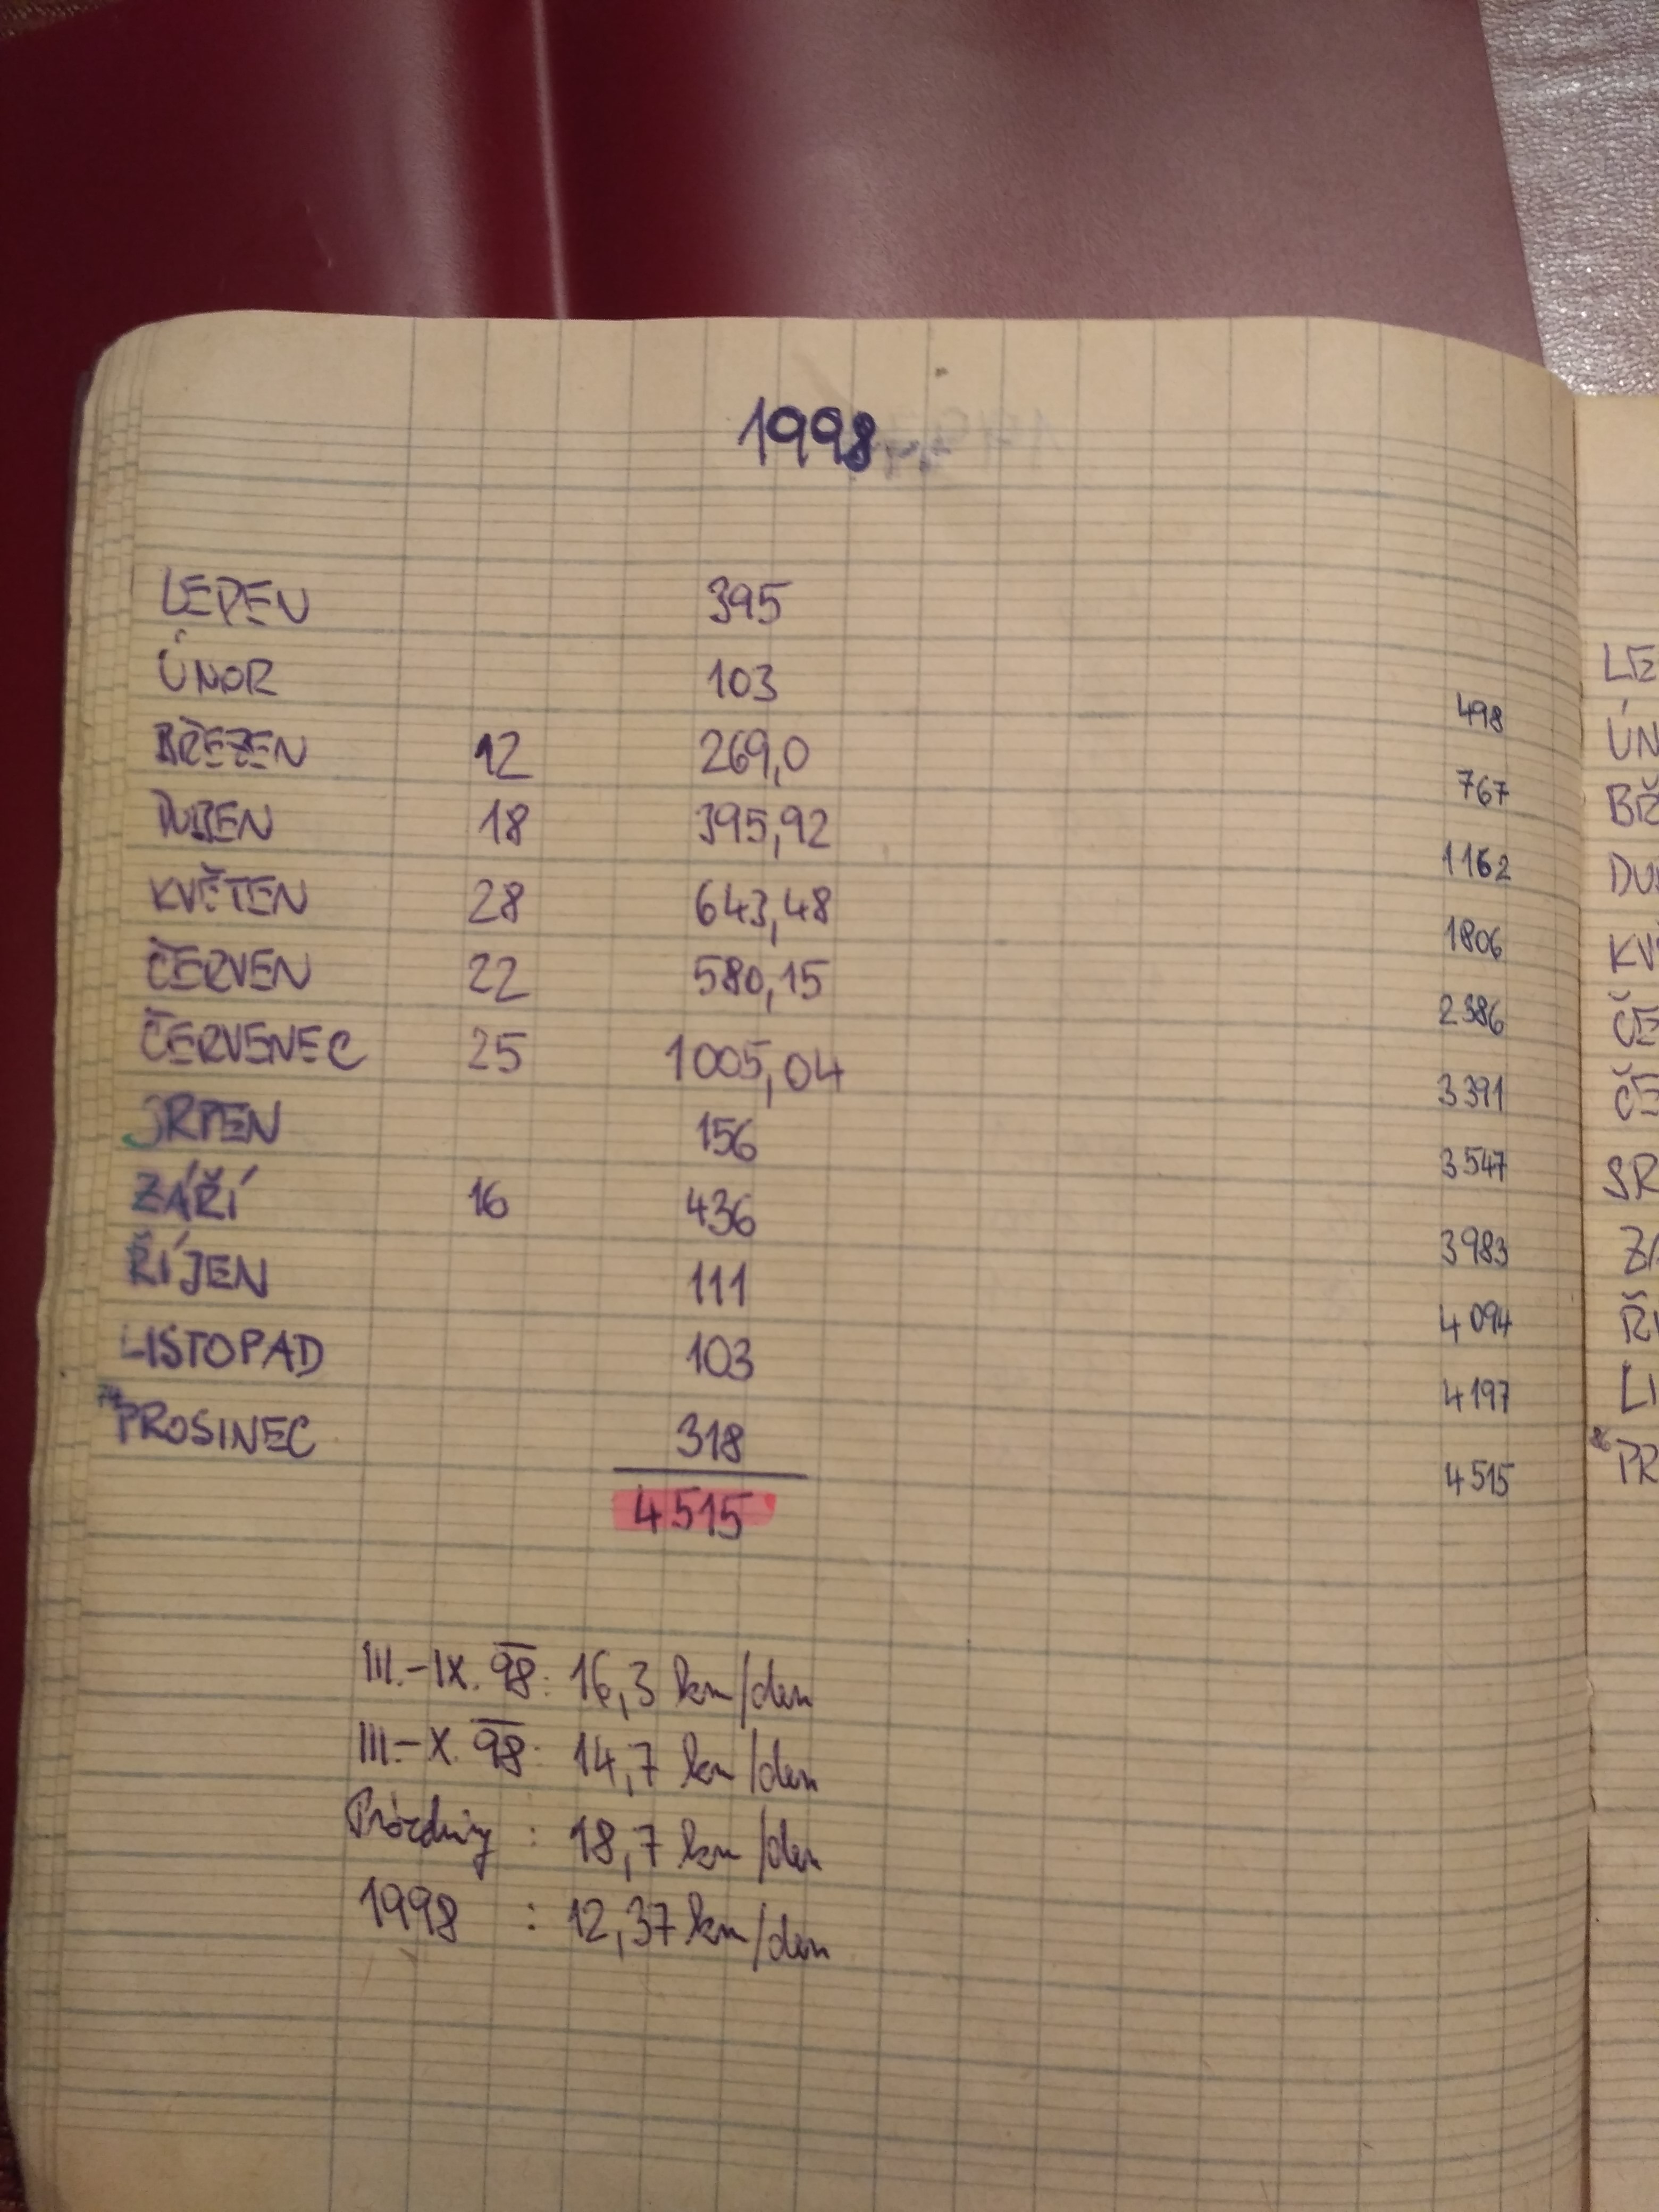 1998
LEDEN 395
ÚNOR 103 498
BŘEZEN 12 269,0 767
DUBEN 18 395,92 1162
KVĚTEN 28 643,48 1806
ČERVEN 22 580,15 2386
ČERVENEC 25 1005,04 3391
SRPEN 156 3547
ZÁŘÍ 16 436 3983
ŘÍJEN 111 4094
LISTOPAD 103 4197
PROSINEC 318 4515
4515
III.-IX. 98: 16,3 km/den
III.-X. 98: 14,7 km/den
Prázdniny : 18,7 km/den
1998 : 12,37 km/den
LE
ÚN
BŘ
DU
KV
ČE
ČE
SR
ZÁ
ŘÍ
LI
PR